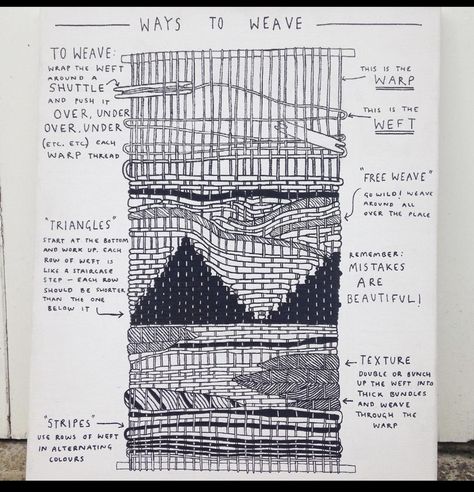 WAYS TO WEAVE
TO WEAVE:
WRAP THE WEFT
AROUND A
SHUTTLE
AND PUSH IT
OVER, UNDER
OVER, UNDER
(ETC. ETC) EACH
WARP THREAD
THIS IS THE
WARP
THIS IS THE
WEFT
"FREE WEAVE"
GO WILD! WEAVE
AROUND ALL
OVER THE PLACE
"TRIANGLES"
START AT THE BOTTOM
AND WORK UP. EACH
ROW OF WEFT IS
LIKE A STAIRCASE
STEP – EACH ROW
SHOULD BE SHORTER
THAN THE ONE
BELOW IT
REMEMBER:
MISTAKES
ARE
BEAUTIFUL!
TEXTURE
DOUBLE OR BUNCH
UP THE WEFT INTO
THICK BUNDLES
AND WEAVE
THROUGH THE
WARP
"STRIPES"
USE ROWS OF WEFT
IN ALTERNATING
COLOURS